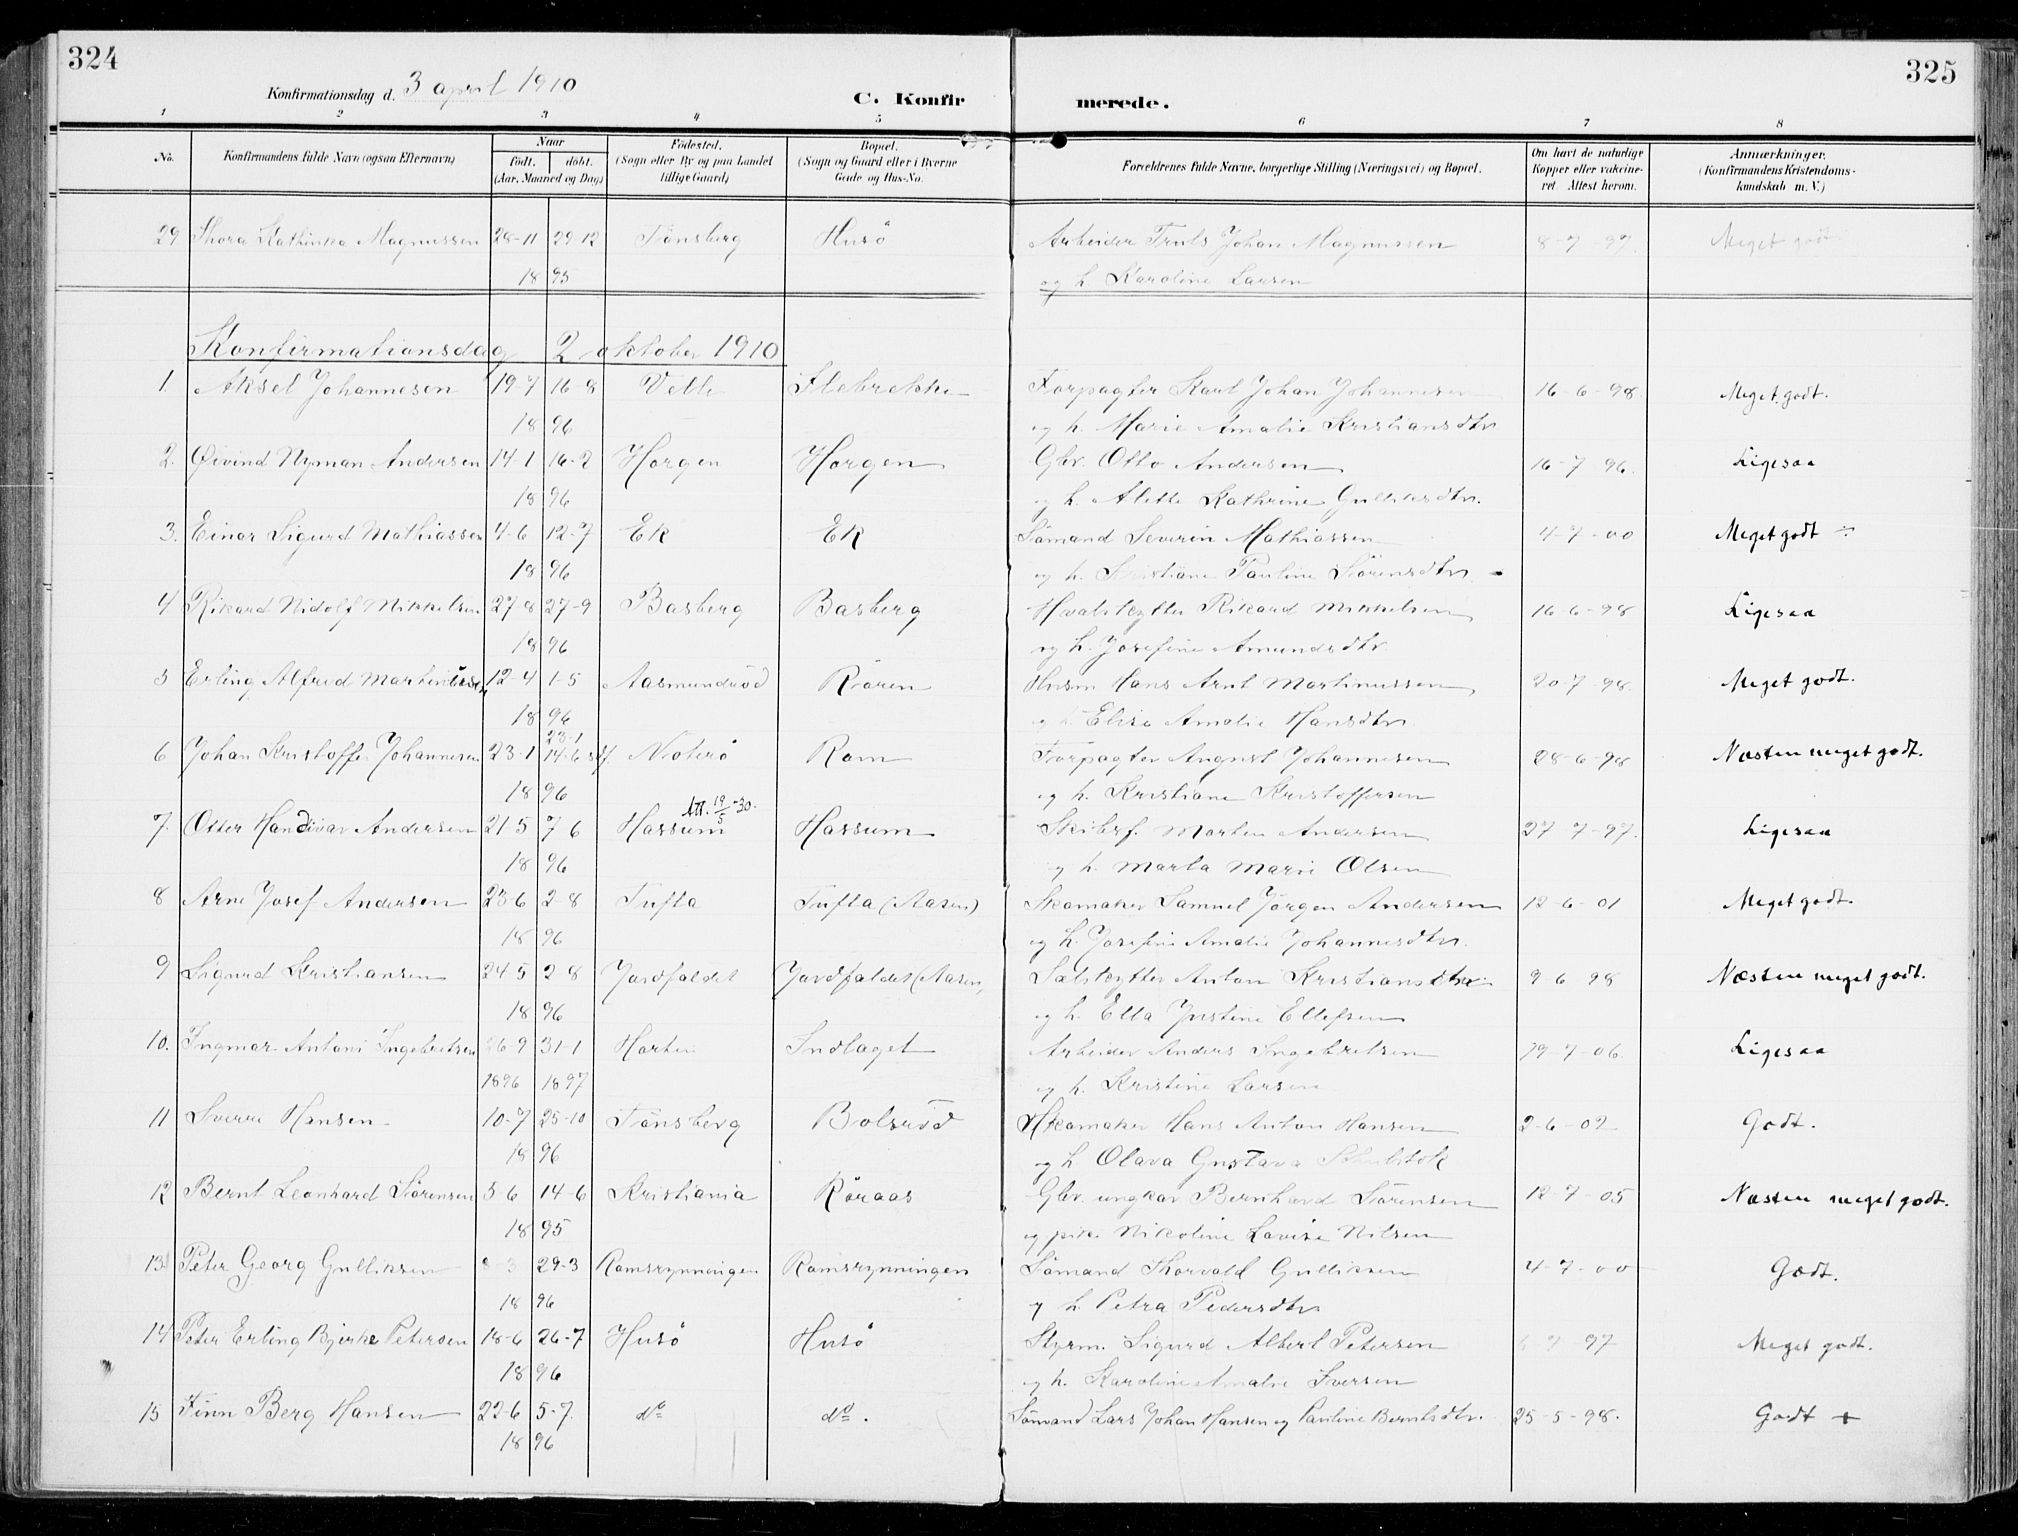 324
325
Konfirmationsdag d. 3 april 1910
C. Konfirmerede.
1 2 3 4 5 6 7 8
No. Konfirmandens fulde Navn (ogsaa Efternavn) Naar født. døbt. (Aar, Maaned og Dag) Fødested. (Sogn eller By og paa Landet tillige Gaard) Bopæl. (Sogn og Gaard eller i Byerne Gade og Hus-No. Forældrenes fulde Navne, borgerlige Stilling (Næringsvei) og Bopæl. Om havt de naturlige Kopper eller vaccineret Attest herom. Anmærkninger. (Konfirmandens Kristendomskundskab m. V.)
29 Thora Kathinka Magnussen 28-11 29-12 Tønsberg Husö Arbeider Truls Johan Magnussen 8-7-97. Meget godt
1895 og h. Karoline Larsen
Konfirmationsdag 2 oktober 1910
1. Aksel Johannesen 19-7 16-8 Velle Ilebrekke Forpagter Karl Johan Johannesen 16-6-98. Meget godt.
1896 og h. Marie Amalie Kristiansdtr
2. Øivind Nyman Andersen 14-1 16-2 Horgen Horgen Gbr. Otto Andersen 16-7-96. Ligesaa
1896 og h. Alette Kathrine Gulliksdtr.
3. Einar Sigurd Mathiassen 4-6 12-7 Ek Ek Sömand Severin Mathiassen 4-7-00 Meget godt ÷
1896 og h. Kristiane Pauline Sörensdtr.
4 Rikard Nidolf Mikkelsen 27-8 27-9 Basberg Basberg Hvalskytter Rikard Mikkelsen 16-6-98 Ligesaa
1896 og h. Josefine Amundsdtr
5 Erling Alfred Martinussen 12-4 1-5 Aasmundröd Rören Husm Hans Arnt Martinussen 20-7-98. Meget godt.
1896 og h. Elise Amalie Hansdtr
6 Johan Kristoffer Johannesen 23-1 23-1 14-6 Nöterö Ram Forpagter August Johannesen 28-6-98 Næsten meget godt.
1896 og h. Kristiane Kristoffersen
7. Otter Handivar Andersen 21-5 7 6 Hassum Att. 19/5-30. Hassum Skibsf. Morten Andersen 27-7-97. Ligesaa
1896 og h. Marta Marie Olsen
8 Arne Josef Andersen 23-6 2-8 Tufta Tufta (Aasen) Skomaker Samuel Jörgen Andersen 12-6-01 Meget godt.
1896 og h. Josefine Amalie Johannesdtr.
9 Sigurd Kristiansen 24-5 2-8 Jordfaldet Jordfaldet (Aasen) Sælskytter Anton 9-6-98 Næsten meget godt.
1896 og h. Ella Justine Ellefsen
10. Ingmar Antoni Ingebretsen 26-9 31-1 Horten Indlaget Arbeider Anders Ingebretsen 19-7-06. Ligesaa
1896 1897 og h. Kristine Larsen
11 Sverre Hansen 10-7 25-10 Tönsberg Bolsröd Skomaker Hans Anton Hansen 2-6-02 Godt.
1896 og h. Olava Gustava
12 Bernt Leonhard Sörensen 5-6 14-6 Kristiania Röraas Gbr. ungkar Bernhard Sörensen 12-7-05 Næsten meget godt.
1895 og pike Nikoline Lovise Nilsen
13 Peter Georg Gulliksen 8-3 29-3 Ramsrynningen Ramsrynningen Sömand Thorvald Gulliksen 4-7-00 Godt.
1896 og h. Petra Pedersdtr
14 Peter Erling Bjerke Petersen 18-6 26-7 Husö Husö Styrm. Sigurd Albert Petersen 6-7-97 Meget godt.
1896 og h. Karoline Amalie Iversen
15 Finn Berg Hansen 22-6 5-7. do do. Sömand Lars Johan Hansen og Pauline Berntsdtr. 25-5-98. Godt +
1896